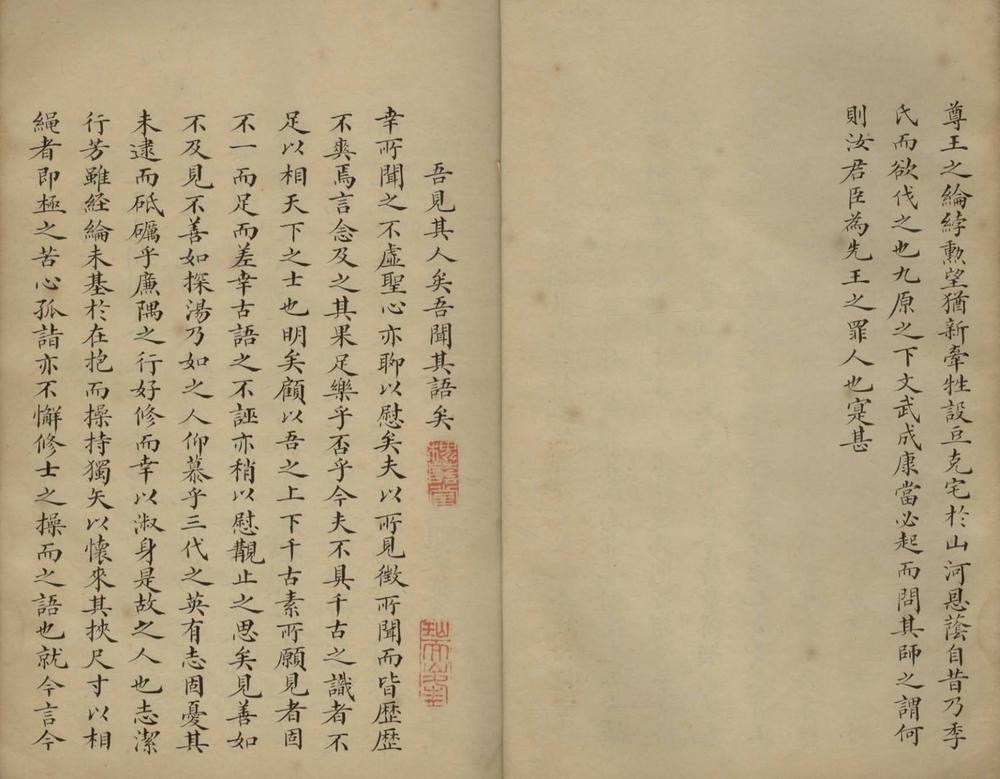 尊王之綸綍勳望猶新牽牲設豆克宅於山河恩蔭自昔乃季
氏而欲伐之也九原之下文武成康當必起而問其師之謂何
則汝君臣為先王之罪人也寔甚
吾見其人矣吾聞其語矣
幸所聞之不虛聖心亦聊以慰矣夫以所見徵所聞而皆歷歷
不爽焉言念及之其果足樂乎否乎今夫不具千古之識者不
足以相天下之士也明矣顧以吾之上下千古素所願見者固
不一而足而差幸古語之不誣亦稍以慰覯止之思矣見善如
不及見不善如探湯乃如之人仰慕乎三代之英有志固憂其
未逮而砥礪乎廉隅之行好修而幸以淑身是故之人也志潔
行芳雖経綸未基於在抱而操持獨矢以懷來其挾尺寸以相
繩者即極之苦心孤詣亦不懈修士之操而之語也就今言今